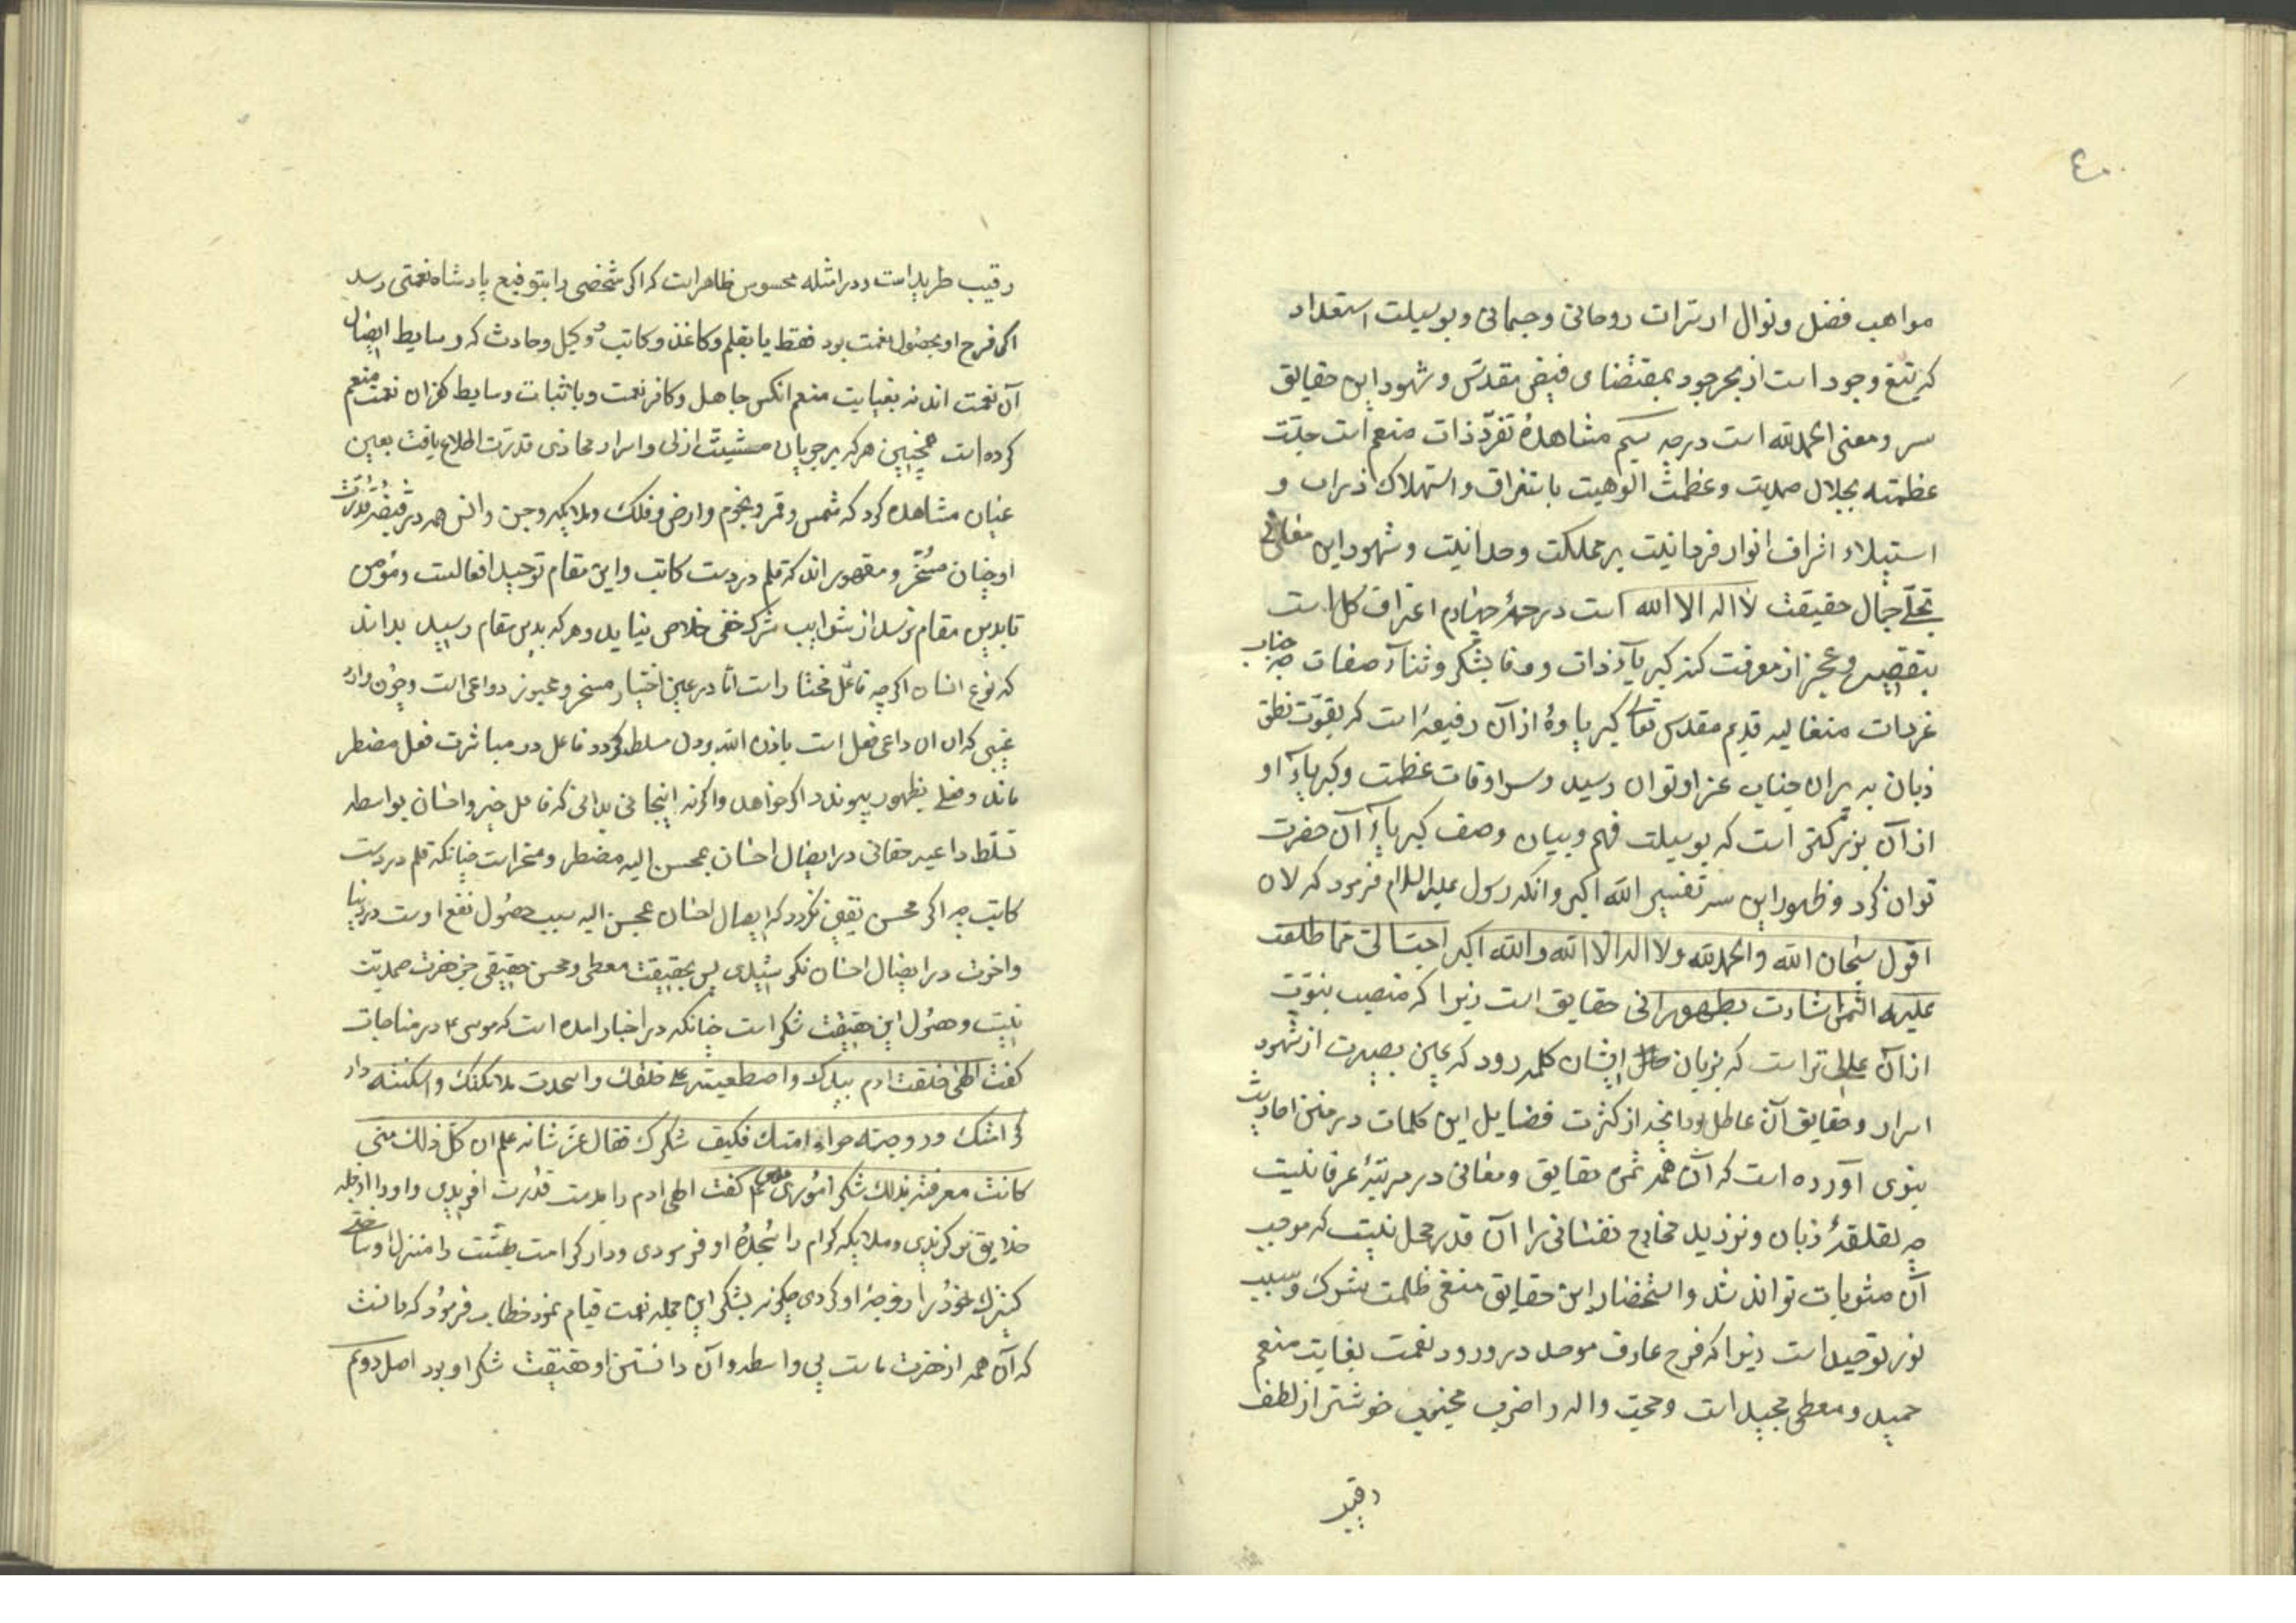 ٤٠
مواهب فضل ونوال از ثمرات روحانی وجسمانی وبوسیلت استعداد
که تبع وجود است از بحر جود بمقتضای فیض مقدس وشهود این حقایق
سر ومعنی الحمدلله است درجه سیم مشاهدهٔ تفرّد ذات منعم است جلّت
عظمته بجلال صمدیت وعظمت الوهیت باستغراق واستهلاک ذرات و
استیلاء اشراف انوار فردانیت بر مملکت وحدانیت وشهود این معانی
تجلّی جمال حقیقت لا اله الا الله است درجهٔ چهارم اعتراف کل است
بتقصیر وعجز از معرفت کنه کبریاء ذات ووفا بشکر وثناء صفات چه جناب
عزت متعالیه قدیم مقدس تعالی کبریاوهٔ از آن رفیعتر است که بقوّت نطق
زبان به پیرامن جناب عز او توان رسید وسرادقات عظمت وکبریاء او
از آن بزرگتر است که بوسیلت فهم وبیان وصف کبریاء آن حضرت
توان کرد وظهور این سر تفسیر الله اکبر وانکه رسول علیه السلام فرمود که لان
اقول سبحان الله والحمدلله ولا اله الا الله والله اکبر احب الی مما طلعت
علیه الشمس اشارت بظهور این حقایق است زیرا که منصب نبوّت
از آن عالی تر است که بزبان ایشان کلمه رود که عین بصیرت از شهود
اسرار وحقایق آن عاطل بود وانچه از کثرت فضایل این کلمات در متن احادیث
نبوی آورده است که آن همه ثمرهٔ حقایق ومعانی در مرتبهٔ عرفانیست
چه لقلقهٔ زبان و مخارج نفسانی را آن قدر محل نیست که موجب
آن مثوبات تواند شد واستحضار این حقایق منفی ظلمت شرک وسبب
نور توحید است زیرا که فرح عارف موحد در ورود نعمت بغایت منعم
حمید ومعطی مجید است ومحبّ واله را ضرب محبوب خوشتر از لطف
رقیب
رقیب طرید است ودر امثله محسوس ظاهر است که اگر شخصی را بتوقیع پادشاه نعمتی رسد
اگر فرح او بحصول نعمت بود فقط یا بقلم وکاغذ وکاتب ووکیل وحادث که وسایط ایصال
آن نعمت اند نه بغایت منعم انکس جاهل وکافر نعمت وباثبات وسایط کفران نعمت منعم
کرده است همچنین هرکه بر جریان مشیّت ازلی واسرار مجاری قدرت اطلاع یافت بعین
عیان مشاهده کرد که شمس وقمر ونجوم وارض وفلک وملایکه وجن وانس همه در قبضه قدرت
او چنان مسخّر ومقهور اند که قلم در دست کاتب واین مقام توحید افعالست ومؤمن
تا بدین مقام نرسد از شوایب شرک خفی خلاص نیابد وهرکه بدین مقام رسید بداند
که نوع انسان اگرچه فاعل مختار است امّا در عین اختیار مسخر ومجبور دواعی است وچون وارد
غیبی که آن داعی فعل است باذن الله بر دل مسلط گردد فاعل در مباشرت فعل مضطر
ماند وفعل بظهور پیوندد اگر خواهد واگر نه اینجا نیز بدانی که فاعل خیر واحسان بواسطه
تسلّط داعیه حقانی در ایصال احسان بمحسن الیه مضطر ومسخر است چنانکه قلم در دست
کاتب چه اگر محسن یقین نکردد که ایصال احسان بمحسن الیه سبب حصول نفع اوست در دنیا
وآخرت در ایصال احسان نکوشیدی پس بحقیقت معطی ومحسن حقیقی جز حضرت صمدیّت
نیست وحصول این حقیقت شکر است چنانکه در اخبار امده است که موسی ع در مناجات
گفت الهی خلقت ادم بیدک واصطفیته علی خلقک واسجدت ملائکتک واسکنته دار
کرامتک وزوجته حواء امتک فکیف شکرک فقال عزّ شانه علم ان کلّ ذلک منّی
کانت معرفته بذلک شکرا موسی گفت الهی ادم را بدست قدرت افریدی واورا از جمله
خلایق بر گزیدی وملایکه کرام را سجدهٔ او فرمودی ودار کرامت بهشت را منزل او ساختی
کنیزک خود را زوجهٔ او کردی چگونه بشکر این جمله نعمت قیام نمود خطاب فرمود که دانست
که آن همه از حضرت ماست بی واسطه وآن دانستن او حقیقت شکر او بود اصل دویم